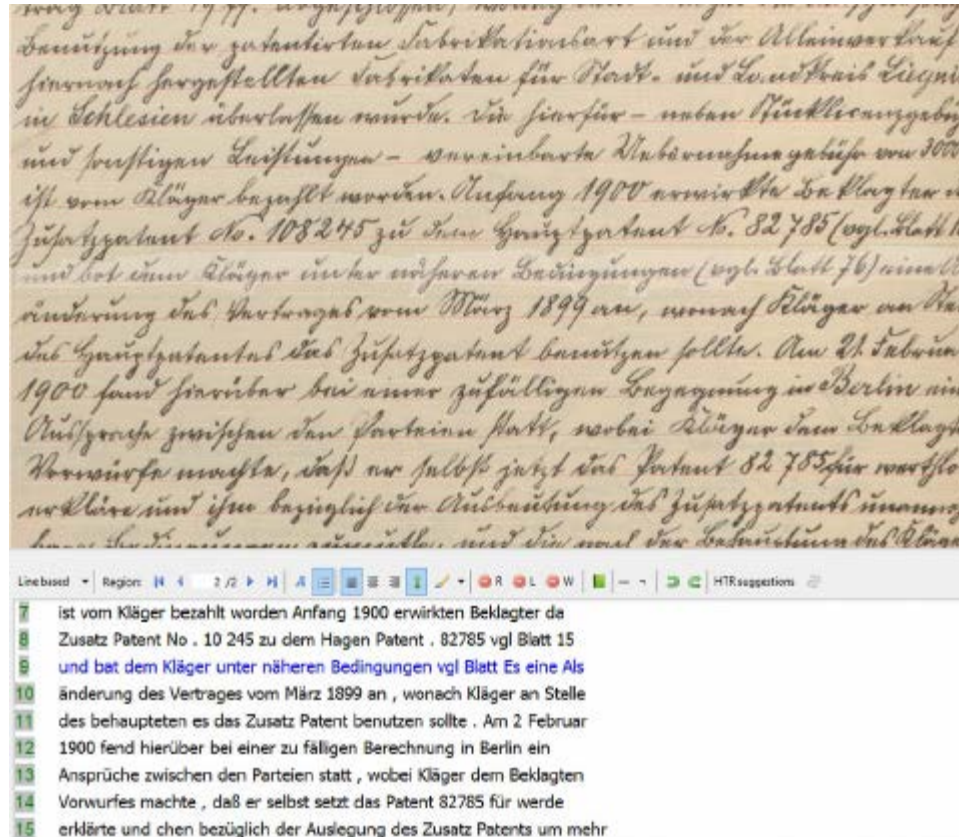 Benutzung der patentirten Fabrikationsart und der Alleinverkauf
hiernach hergestellten Fabrikaten für Stadt- und Landkreis Liegni
in Schlesien überlassen wurde. Die hierfür – neben Stücklicenzgebüh
und sonstigen Leistungen – vereinbarte Uebernahmegebühr von 3000
ist vom Kläger bezahlt worden. Anfang 1900 erwirkte Beklagter
Zusatzpatent No. 108245 zu dem Hauptpatent No. 82 785 (vgl. Blatt
und bot dem Kläger unter näheren Bedingungen (vgl. Blatt 76) eine
änderung des Vertrages vom März 1899 an, wonach Kläger an Ste
des Hauptpatentes das Zusatzpatent benützen sollte. Am 21. Februa
1900 fand hierüber bei einer zufälligen Begegnung in Berlin ein
Aussprache zwischen den Parteien statt, wobei Kläger dem Beklagt
Vorwürfe machte, daß er selbst jetzt das Patent 82 785 für werthlo
erkläre und ihm bezüglich der Ausbeutung des Zusatzpatents unanne
Bedingungen zumuthe, und die nach der Behauptung des Kläge
Line based Region: 2 /2 R L W HTR suggestions
7 ist vom Kläger bezahlt worden Anfang 1900 erwirkten Beklagter da
8 Zusatz Patent No . 10 245 zu dem Hagen Patent . 82785 vgl Blatt 15
9 und bat dem Kläger unter näheren Bedingungen vgl Blatt Es eine Als
10 änderung des Vertrages vom März 1899 an , wonach Kläger an Stelle
11 des behaupteten es das Zusatz Patent benutzen sollte . Am 2 Februar
12 1900 fend hierüber bei einer zu fälligen Berechnung in Berlin ein
13 Ansprüche zwischen den Parteien statt , wobei Kläger dem Beklagten
14 Vorwurfes machte , daß er selbst setzt das Patent 82785 für werde
15 erklärte und chen bezüglich der Auslegung des Zusatz Patents um mehr